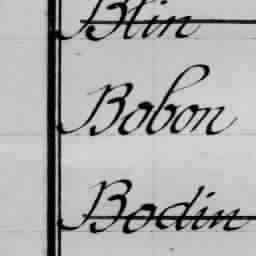 Blin
Bobon
Bodin